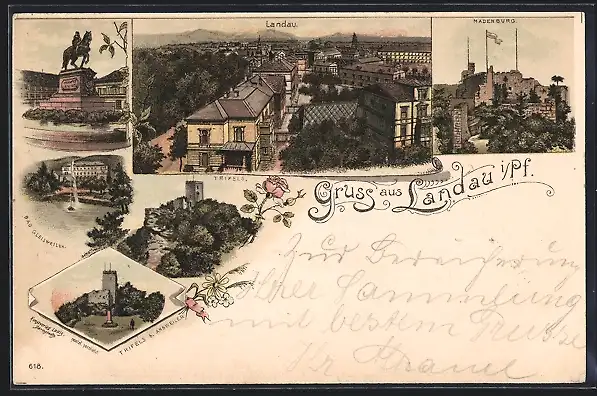 Landau.
MADENBURG.
TRIFELS.
Gruss aus Landau i/Pf.
BAD GLEISWEILER.
TRIFELS b. ANNWEILER
618.
Zur Bereicherung
Ihrer Sammlung
mit bestem Grusse